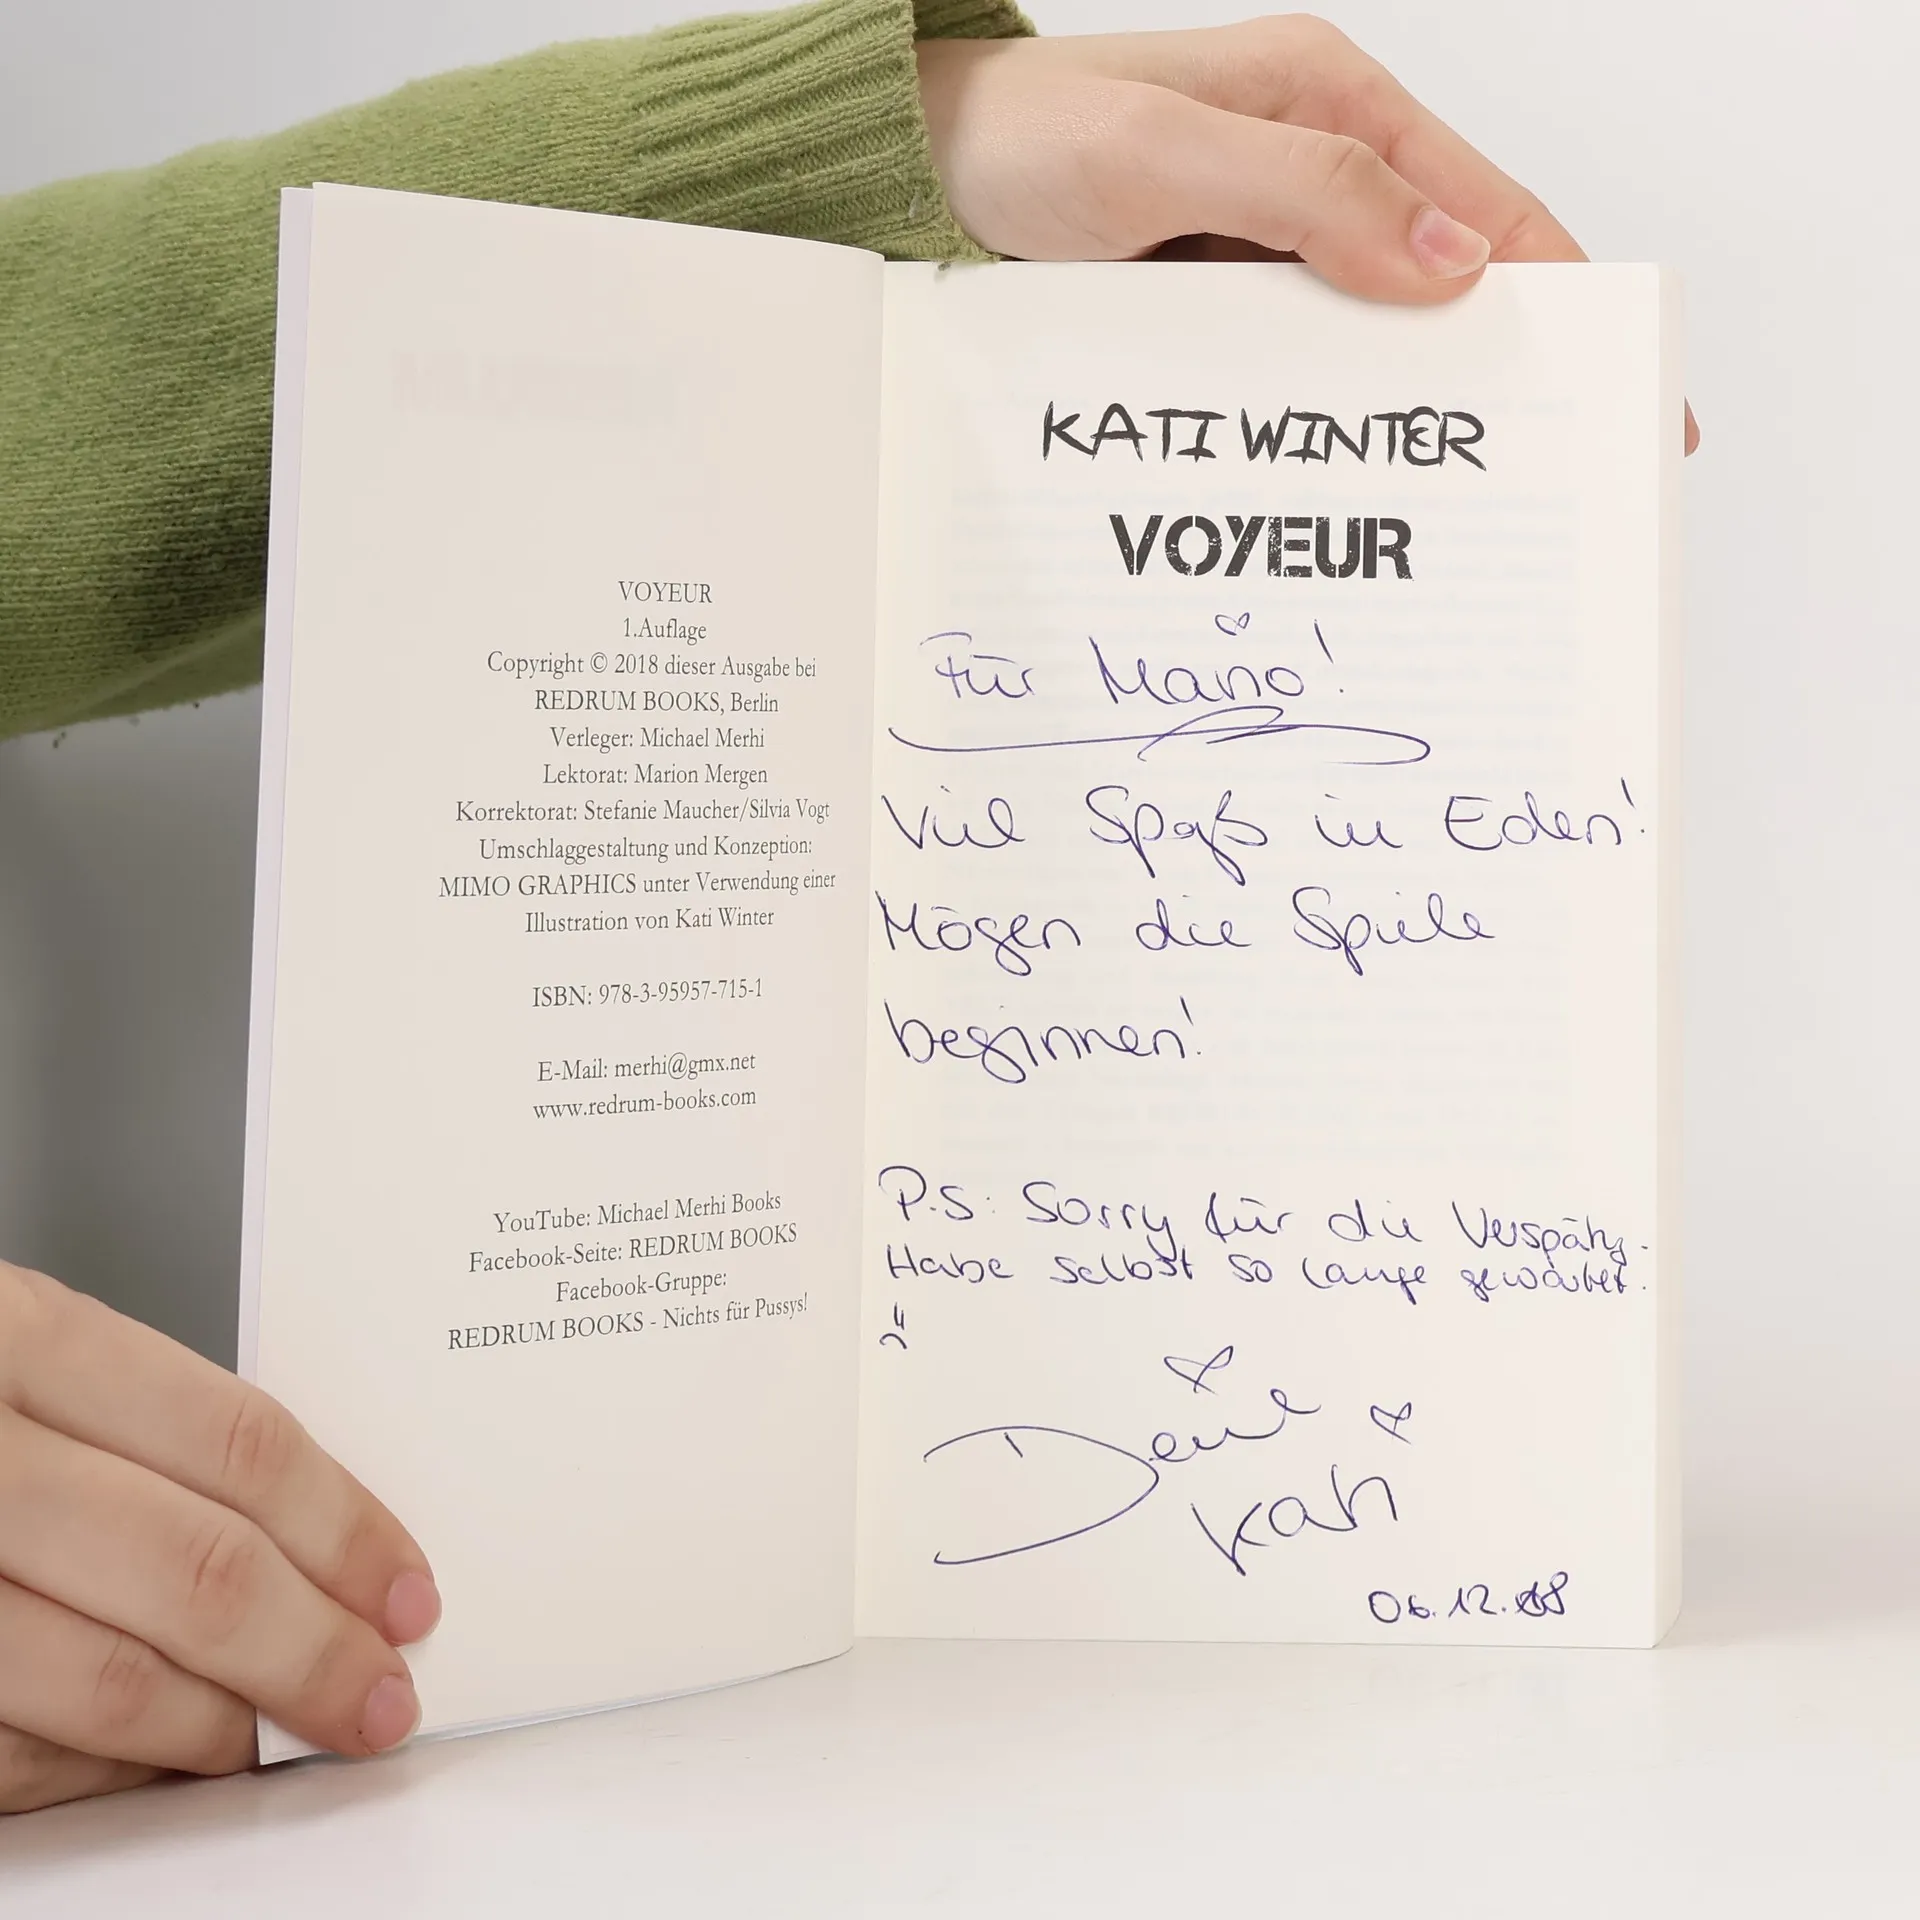 VOYEUR
1.Auflage
Copyright © 2018 dieser Ausgabe bei
REDRUM BOOKS, Berlin
Verleger: Michael Merhi
Lektorat: Marion Mergen
Korrektorat: Stefanie Maucher/Silvia Vogt
Umschlaggestaltung und Konzeption:
MIMO GRAPHICS unter Verwendung einer
Illustration von Kati Winter
ISBN: 978-3-95957-715-1
E-Mail: merhi@gmx.net
www.redrum-books.com
YouTube: Michael Merhi Books
Facebook-Seite: REDRUM BOOKS
Facebook-Gruppe:
REDRUM BOOKS - Nichts für Pussys!
KATI WINTER
VOYEUR
Für Mario!
Viel Spaß in Eden!
Mögen die Spiele
beginnen!
P.S: Sorry für die Verspätg.
Habe selbst so lange gewartet.
Deine
Kati
06.12.18